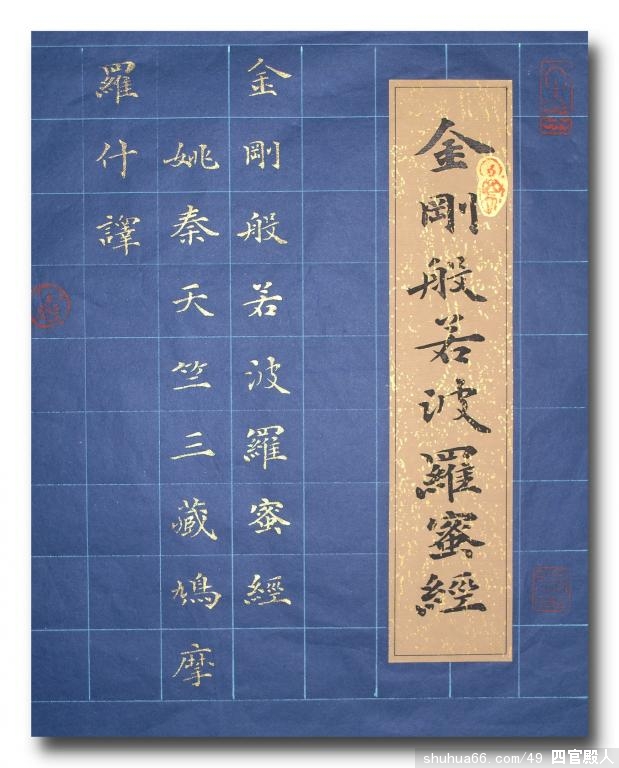 金剛般若波羅蜜經
金剛般若波羅蜜經
姚秦天竺三藏鳩摩
羅什譯
shuhua66.com/49 四官殿人